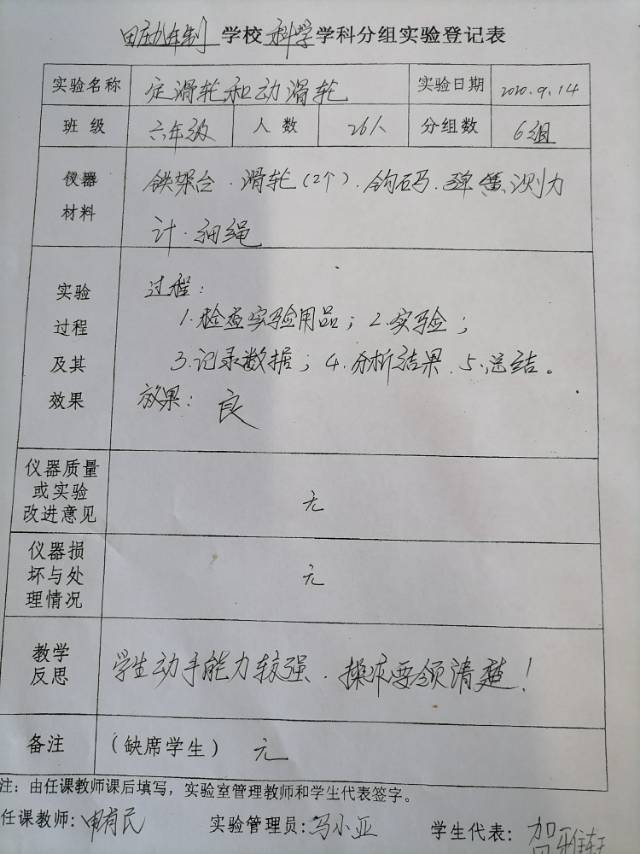 田庄九年制 学校 科学 学科分组实验登记表
实验名称 定滑轮和动滑轮 实验日期 2020.9.14
班级 六年级 人数 26人 分组数 6组
仪器
材料
铁架台.滑轮(2个).钩码.弹簧测力
计.细绳
实验
过程
及其
效果
过程:
1.检查实验用品;2.实验;
3.记录数据;4.分析结果.5.总结。
效果: 良
仪器质量
或实验
改进意见
无
仪器损
坏与处
理情况
无
教学
反思
学生动手能力较强.操作要领清楚!
备注 (缺席学生) 无
注:由任课教师课后填写,实验室管理教师和学生代表签字。
任课教师:申有民 实验管理员:马小亚 学生代表:贺雅轩